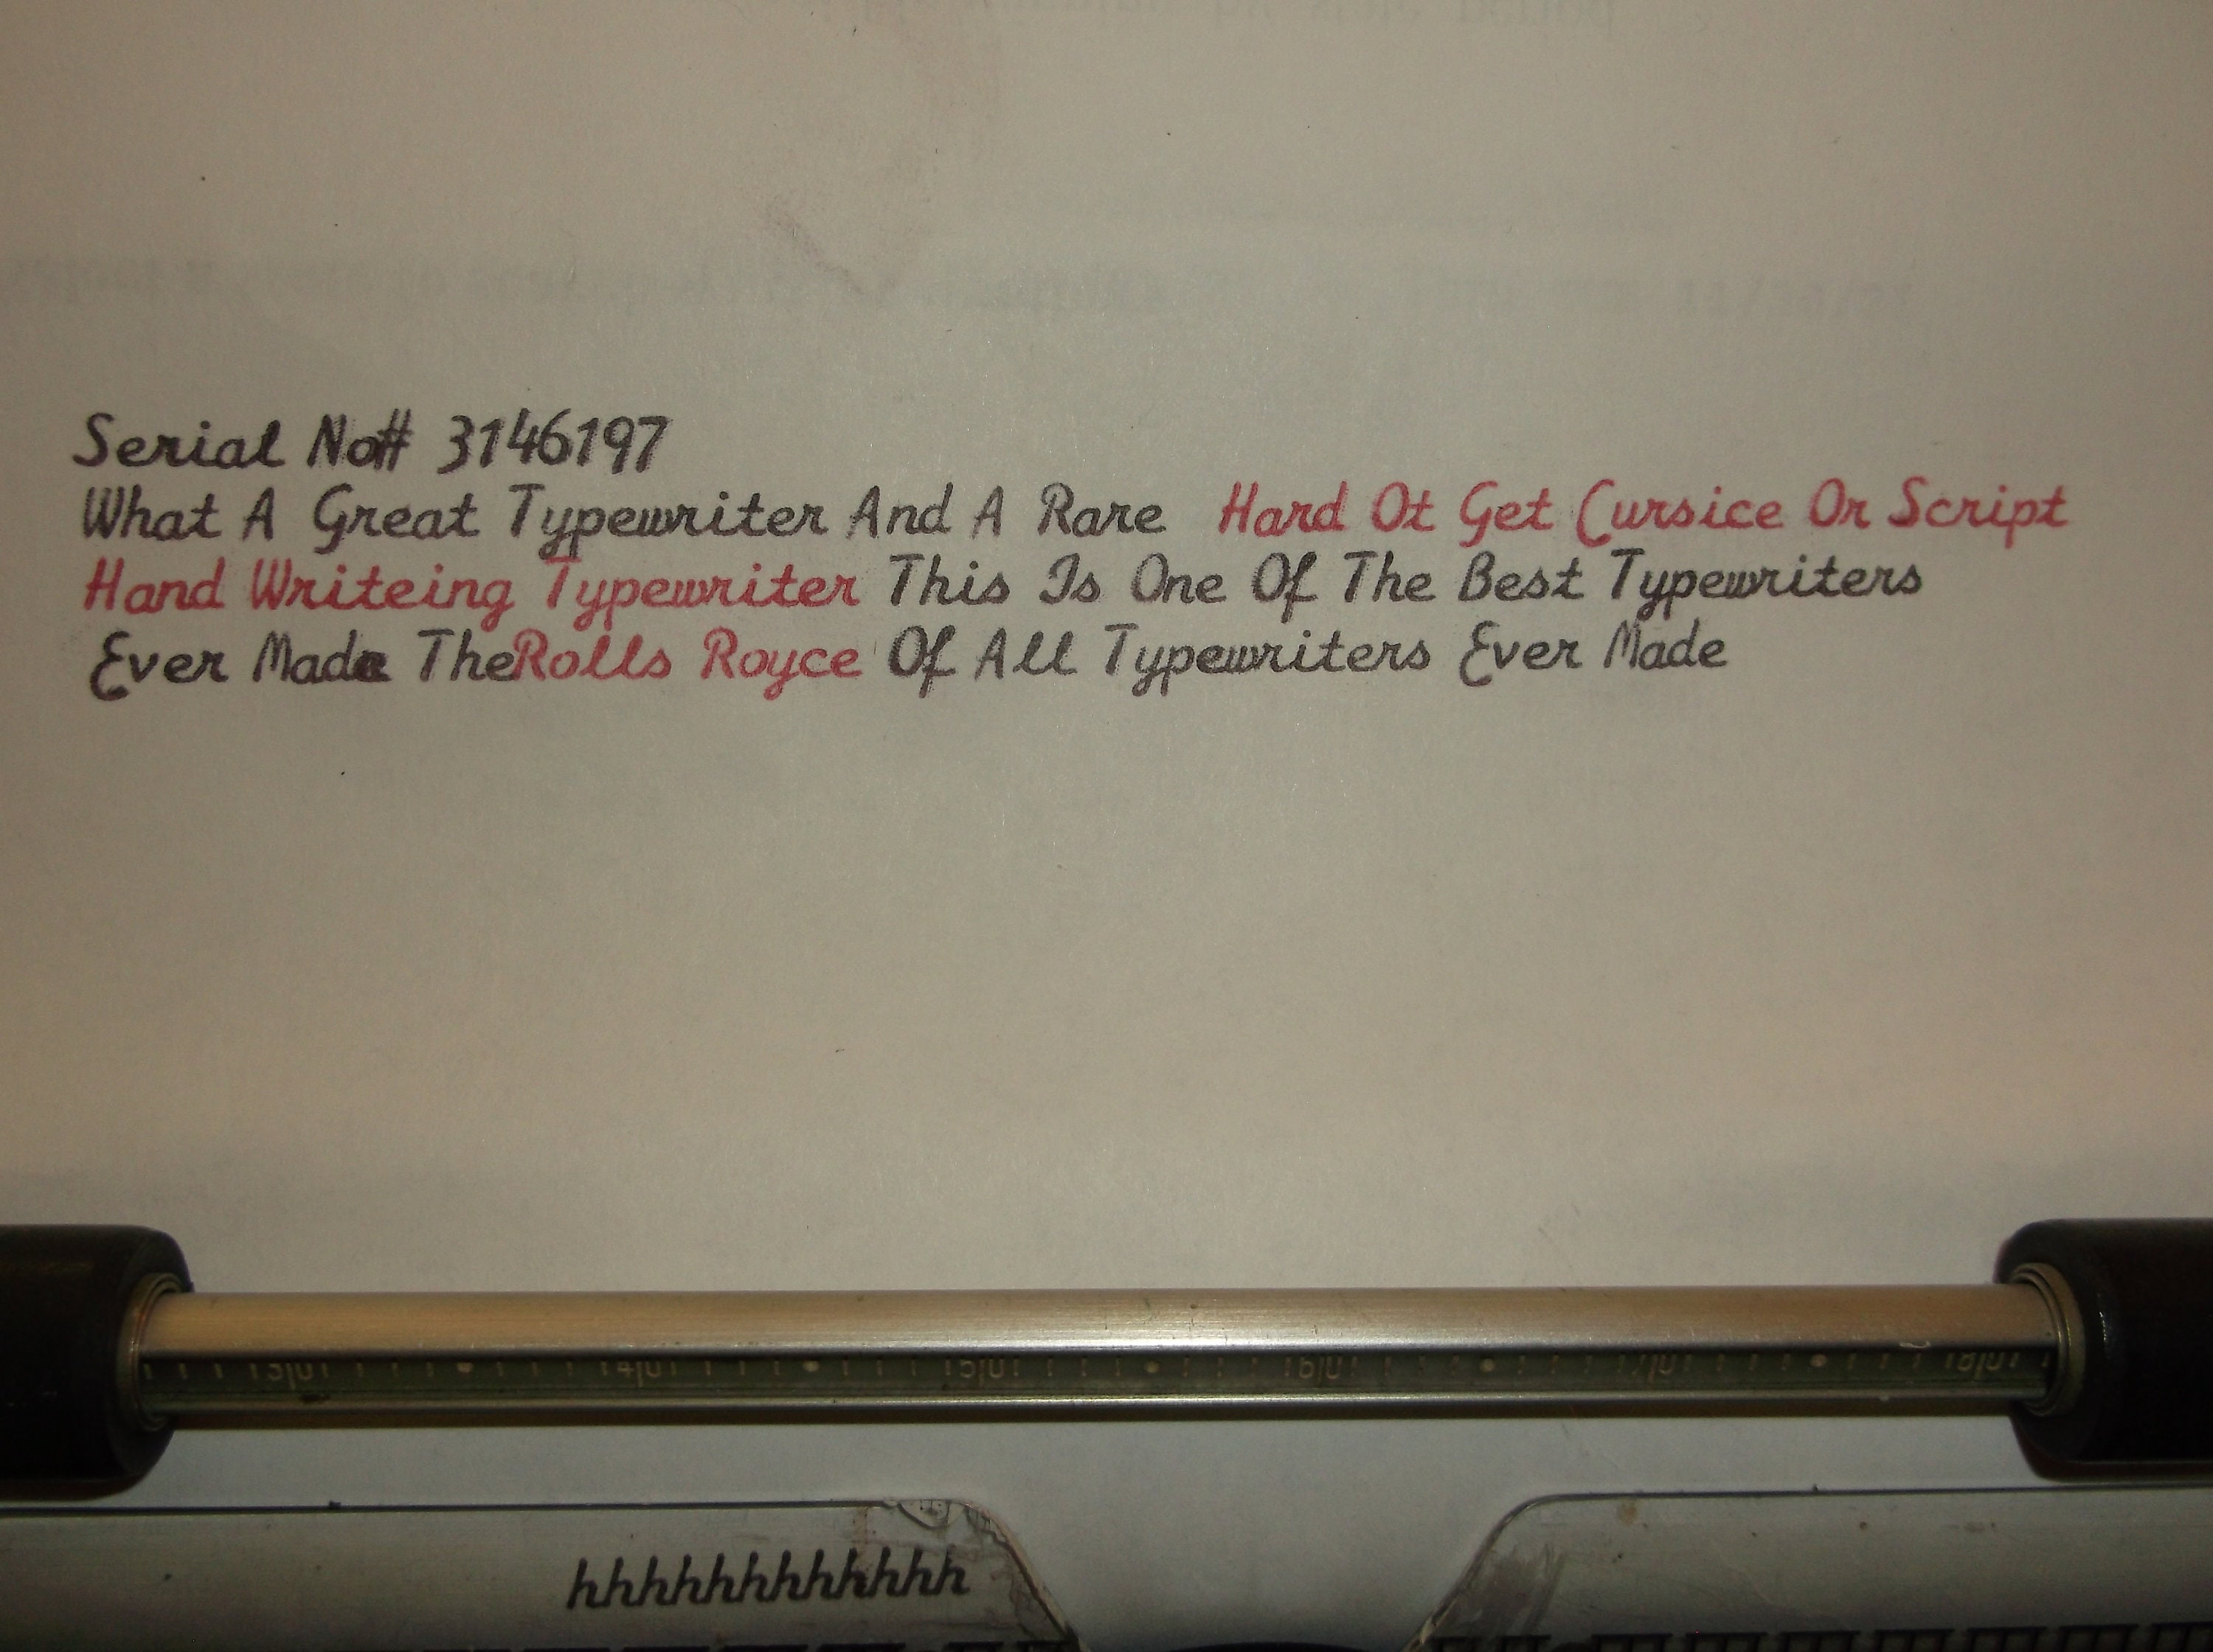 Serial No# 3146197
What A Great Typewriter And A Rare Hard Ot Get Cursice Or Script
Hand Writeing Typewriter This Is One Of The Best Typewriters
Ever Made The Rolls Royce Of All Typewriters Ever Made
30 40 50 60 70 80
hhhhhhhhhhhh